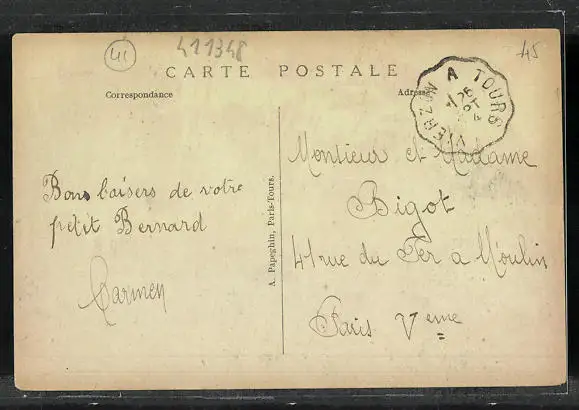 41
411348
45
CARTE POSTALE
Correspondance
Adresse
VIERZON A TOURS
26
4
Bons baisers de votre
petit Bernard
Carmen
A. Papeghin, Paris-Tours.
Monsieur et Madame
Bigot
41 rue du Fer a Moulin
Paris Veme